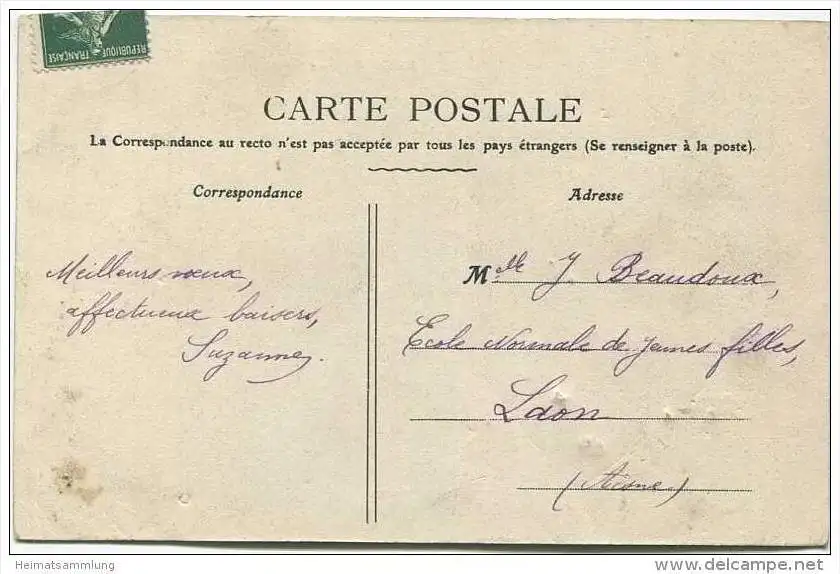 REPUBLIQUE FRANÇAISE
CARTE POSTALE
La Correspondance au recto n'est pas acceptée par tous les pays étrangers (Se renseigner à la poste).
Correspondance
Meilleurs vœux,
affectueux baisers,
Suzanne.
Adresse
Mlle J. Beaudoux,
Ecole Normale de jeunes filles,
Laon
(Aisne)
Heimatsammlung
delcampe.net